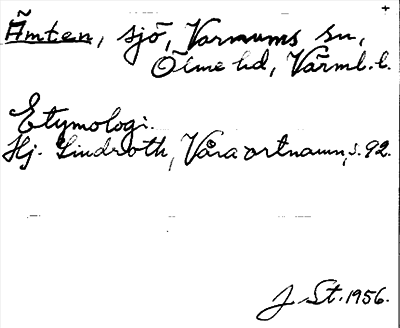 Ämten, sjö, Varnums sn,
Ölme hd, Värml. l.
Etymologi.
Hj. Lindroth, Våra ortnamn, s. 92.
J St. 1956.